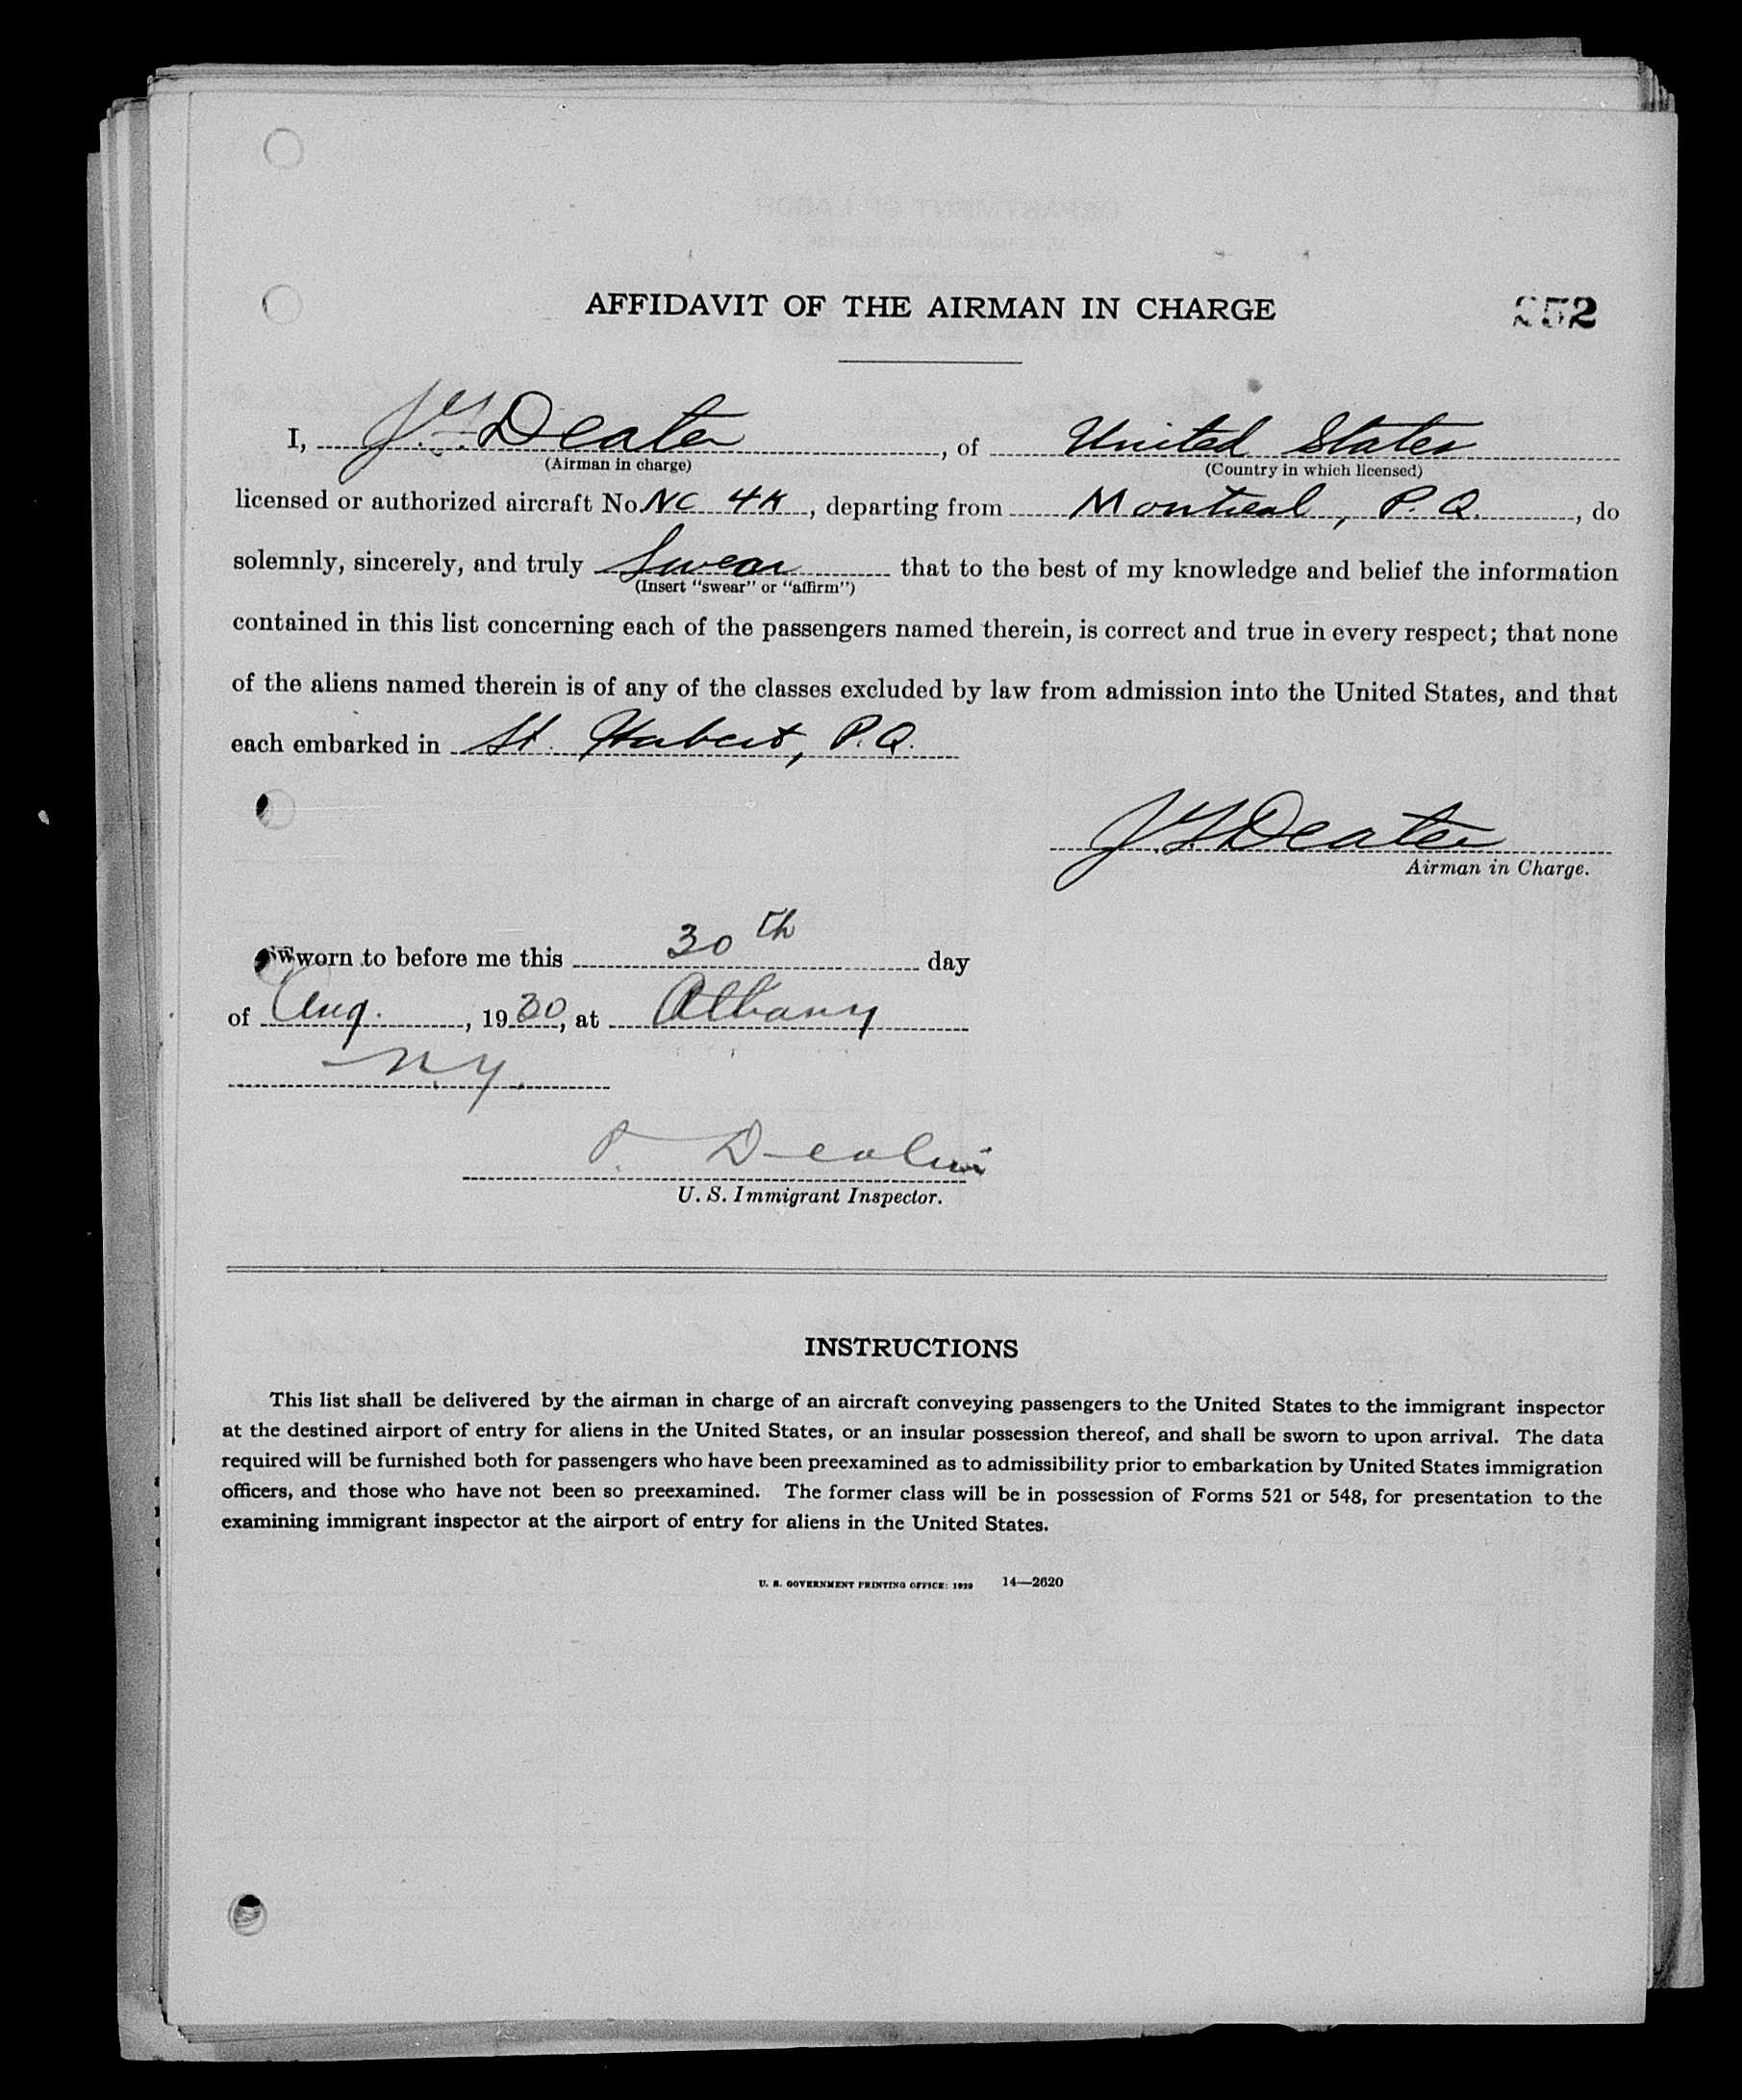 AFFIDAVIT OF THE AIRMAN IN CHARGE
252
I, J. Y. Deater, of United States
(Airman in charge) (Country in which licensed)
licensed or authorized aircraft No. NC 4K, departing from Montreal, P. Q., do
solemnly, sincerely, and truly Swear that to the best of my knowledge and belief the information
(Insert "swear" or "affirm")
contained in this list concerning each of the passengers named therein, is correct and true in every respect; that none
of the aliens named therein is of any of the classes excluded by law from admission into the United States, and that
each embarked in St. Hubert, P.Q.
Deater
Airman in Charge.
Sworn to before me this 30th day
of Aug., 1930, at Albany
N.Y.
P.
U. S. Immigrant Inspector.
INSTRUCTIONS
This list shall be delivered by the airman in charge of an aircraft conveying passengers to the United States to the immigrant inspector
at the destined airport of entry for aliens in the United States, or an insular possession thereof, and shall be sworn to upon arrival. The data
required will be furnished both for passengers who have been preexamined as to admissibility prior to embarkation by United States immigration
officers, and those who have not been so preexamined. The former class will be in possession of Forms 521 or 548, for presentation to the
examining immigrant inspector at the airport of entry for aliens in the United States.
U. S. GOVERNMENT PRINTING OFFICE: 1929 14—2620